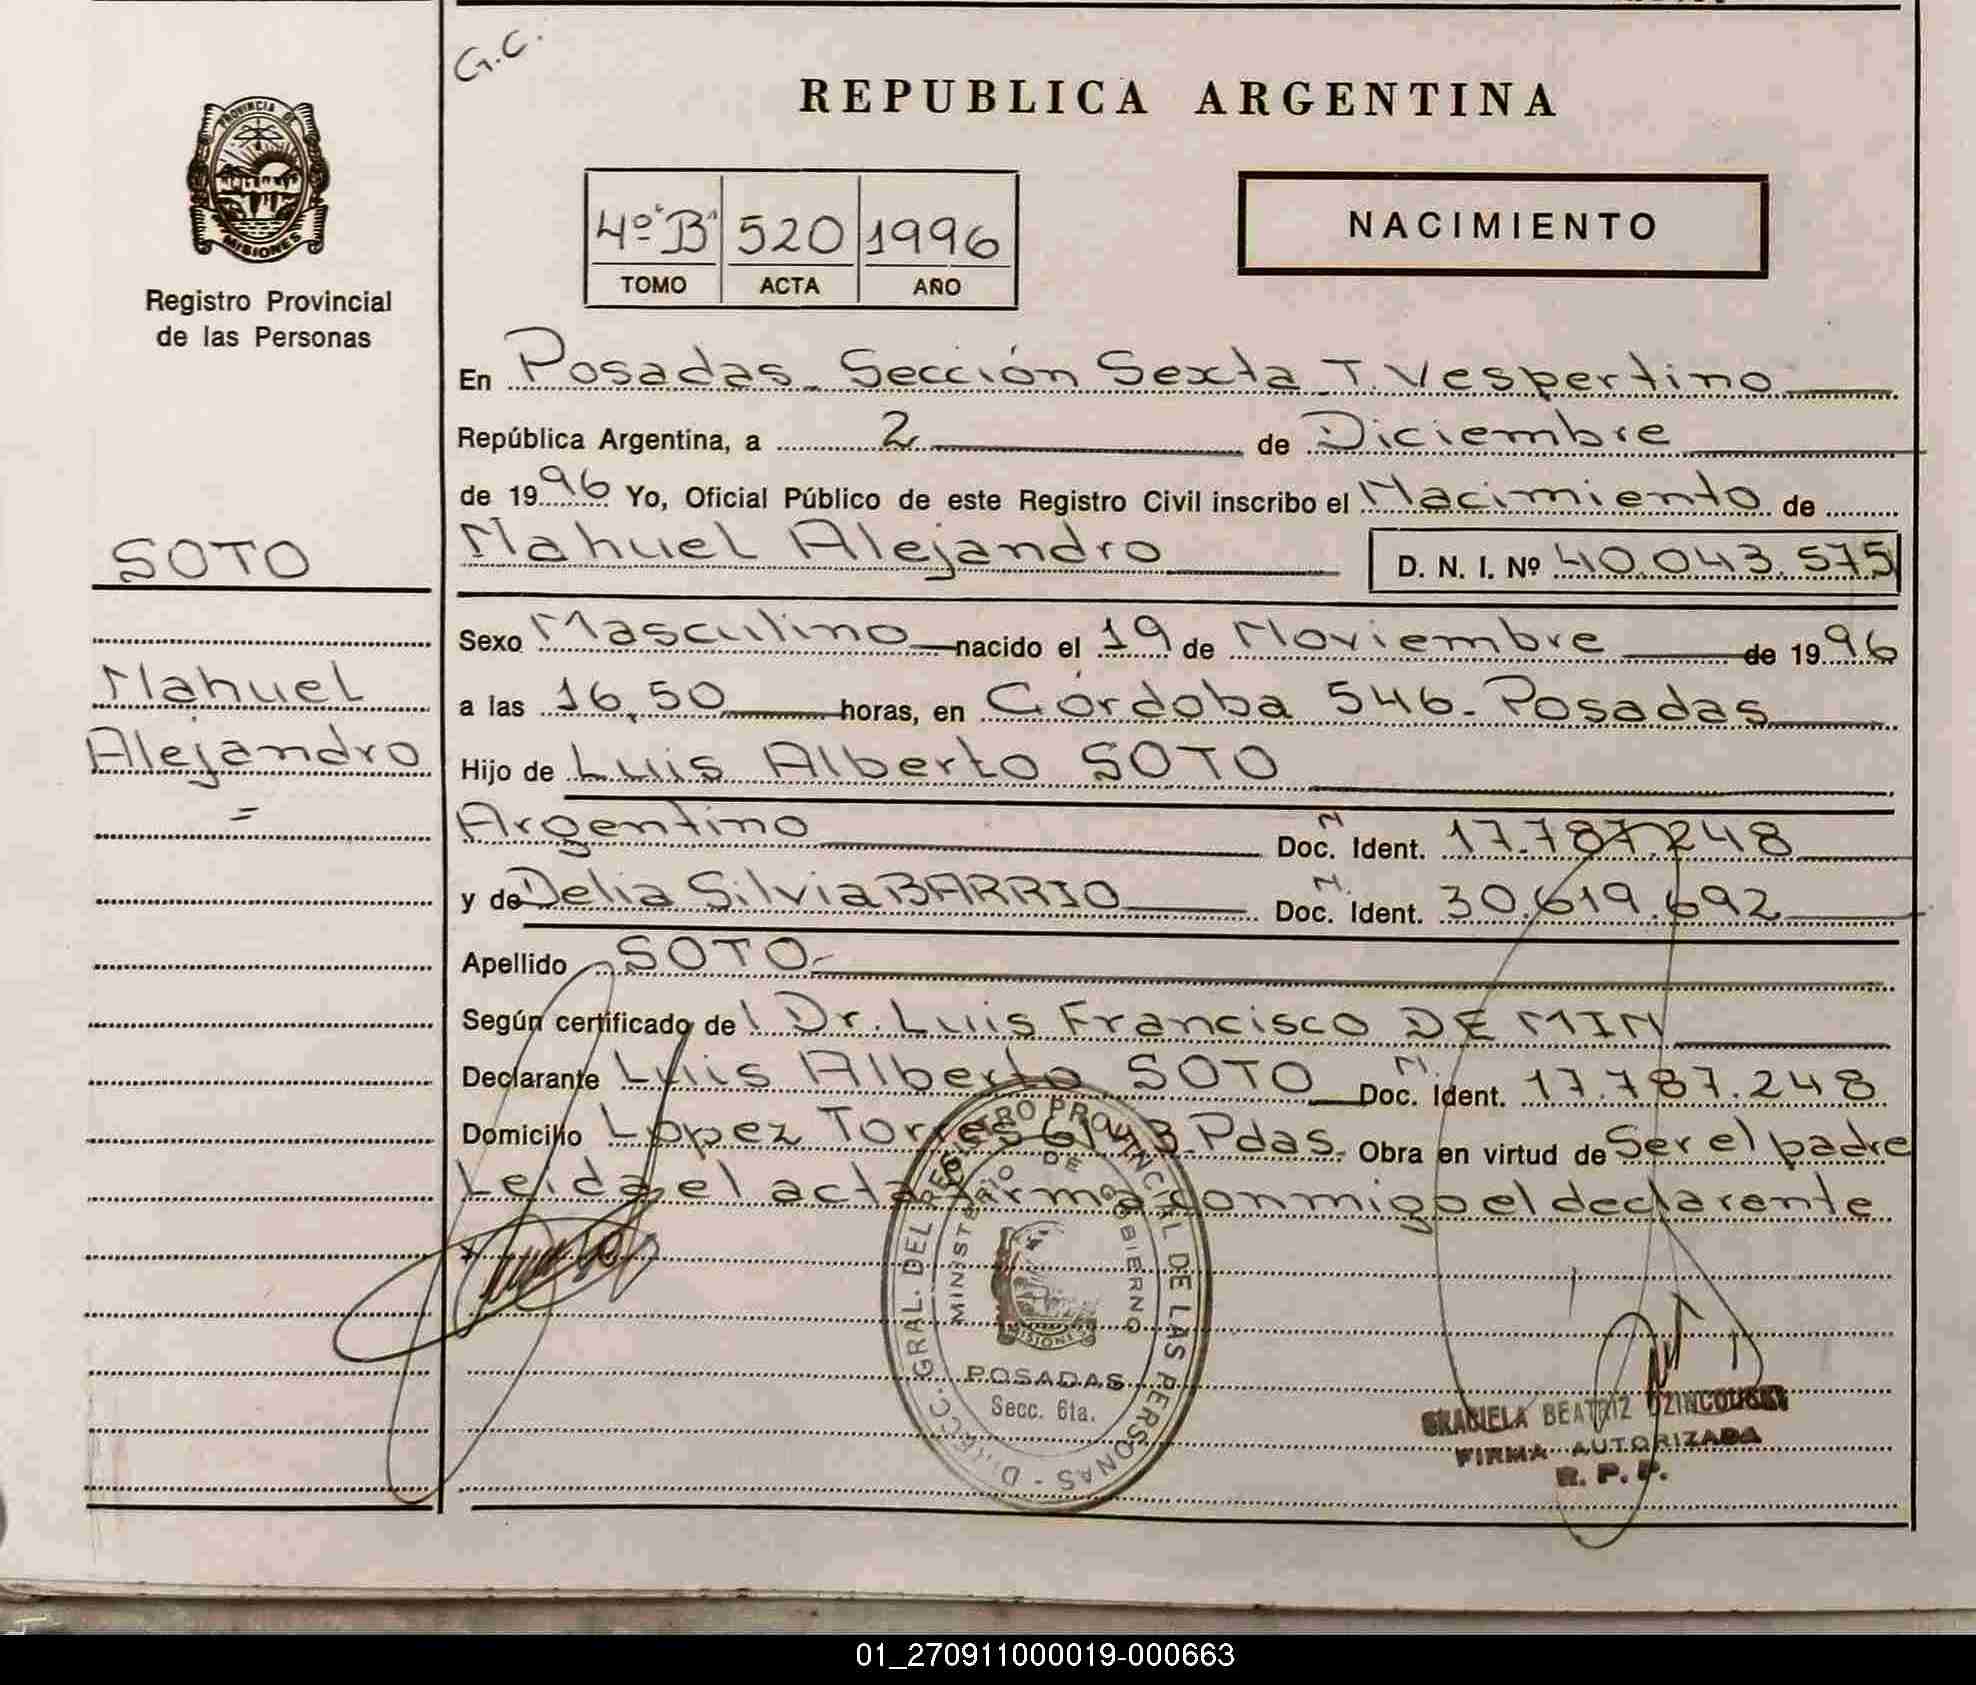 G.C.
REPUBLICA ARGENTINA
PROVINCIA DE
MISIONES
Registro Provincial
de las Personas
4º "B" 520 1996
TOMO ACTA AÑO
NACIMIENTO
En Posadas - Sección Sexta T. Vespertino
República Argentina, a 2 de Diciembre
de 1996 Yo, Oficial Público de este Registro Civil inscribo el Nacimiento de
SOTO
Nahuel Alejandro D. N. I. Nº 40.043.575
Sexo Masculino nacido el 19 de Noviembre de 1996
Nahuel
a las 16,50 horas, en Córdoba 546 - Posadas
Alejandro
Hijo de Luis Alberto SOTO
=
Argentino N Doc. Ident. 17.787.248
y de Delia Silvia BARRIO N. Doc. Ident. 30.619.692
Apellido SOTO.-
Según certificado del Dr. Luis Francisco DE MIN
Declarante Luis Alberto SOTO N. Doc. Ident. 17.787.248
Domicilio López Torres Pdas. Obra en virtud de Ser el padre
Leida el acta firma conmigo el declarente
DIRECC. GRAL. DEL REGISTRO PROVINCIAL DE LAS PERSONAS -
MINISTERIO DE GOBIERNO
MISIONES
POSADAS
Secc. 6ta.
GRACIELA BEATRIZ
FIRMA AUTORIZADA
R. P. P.
01_270911000019-000663